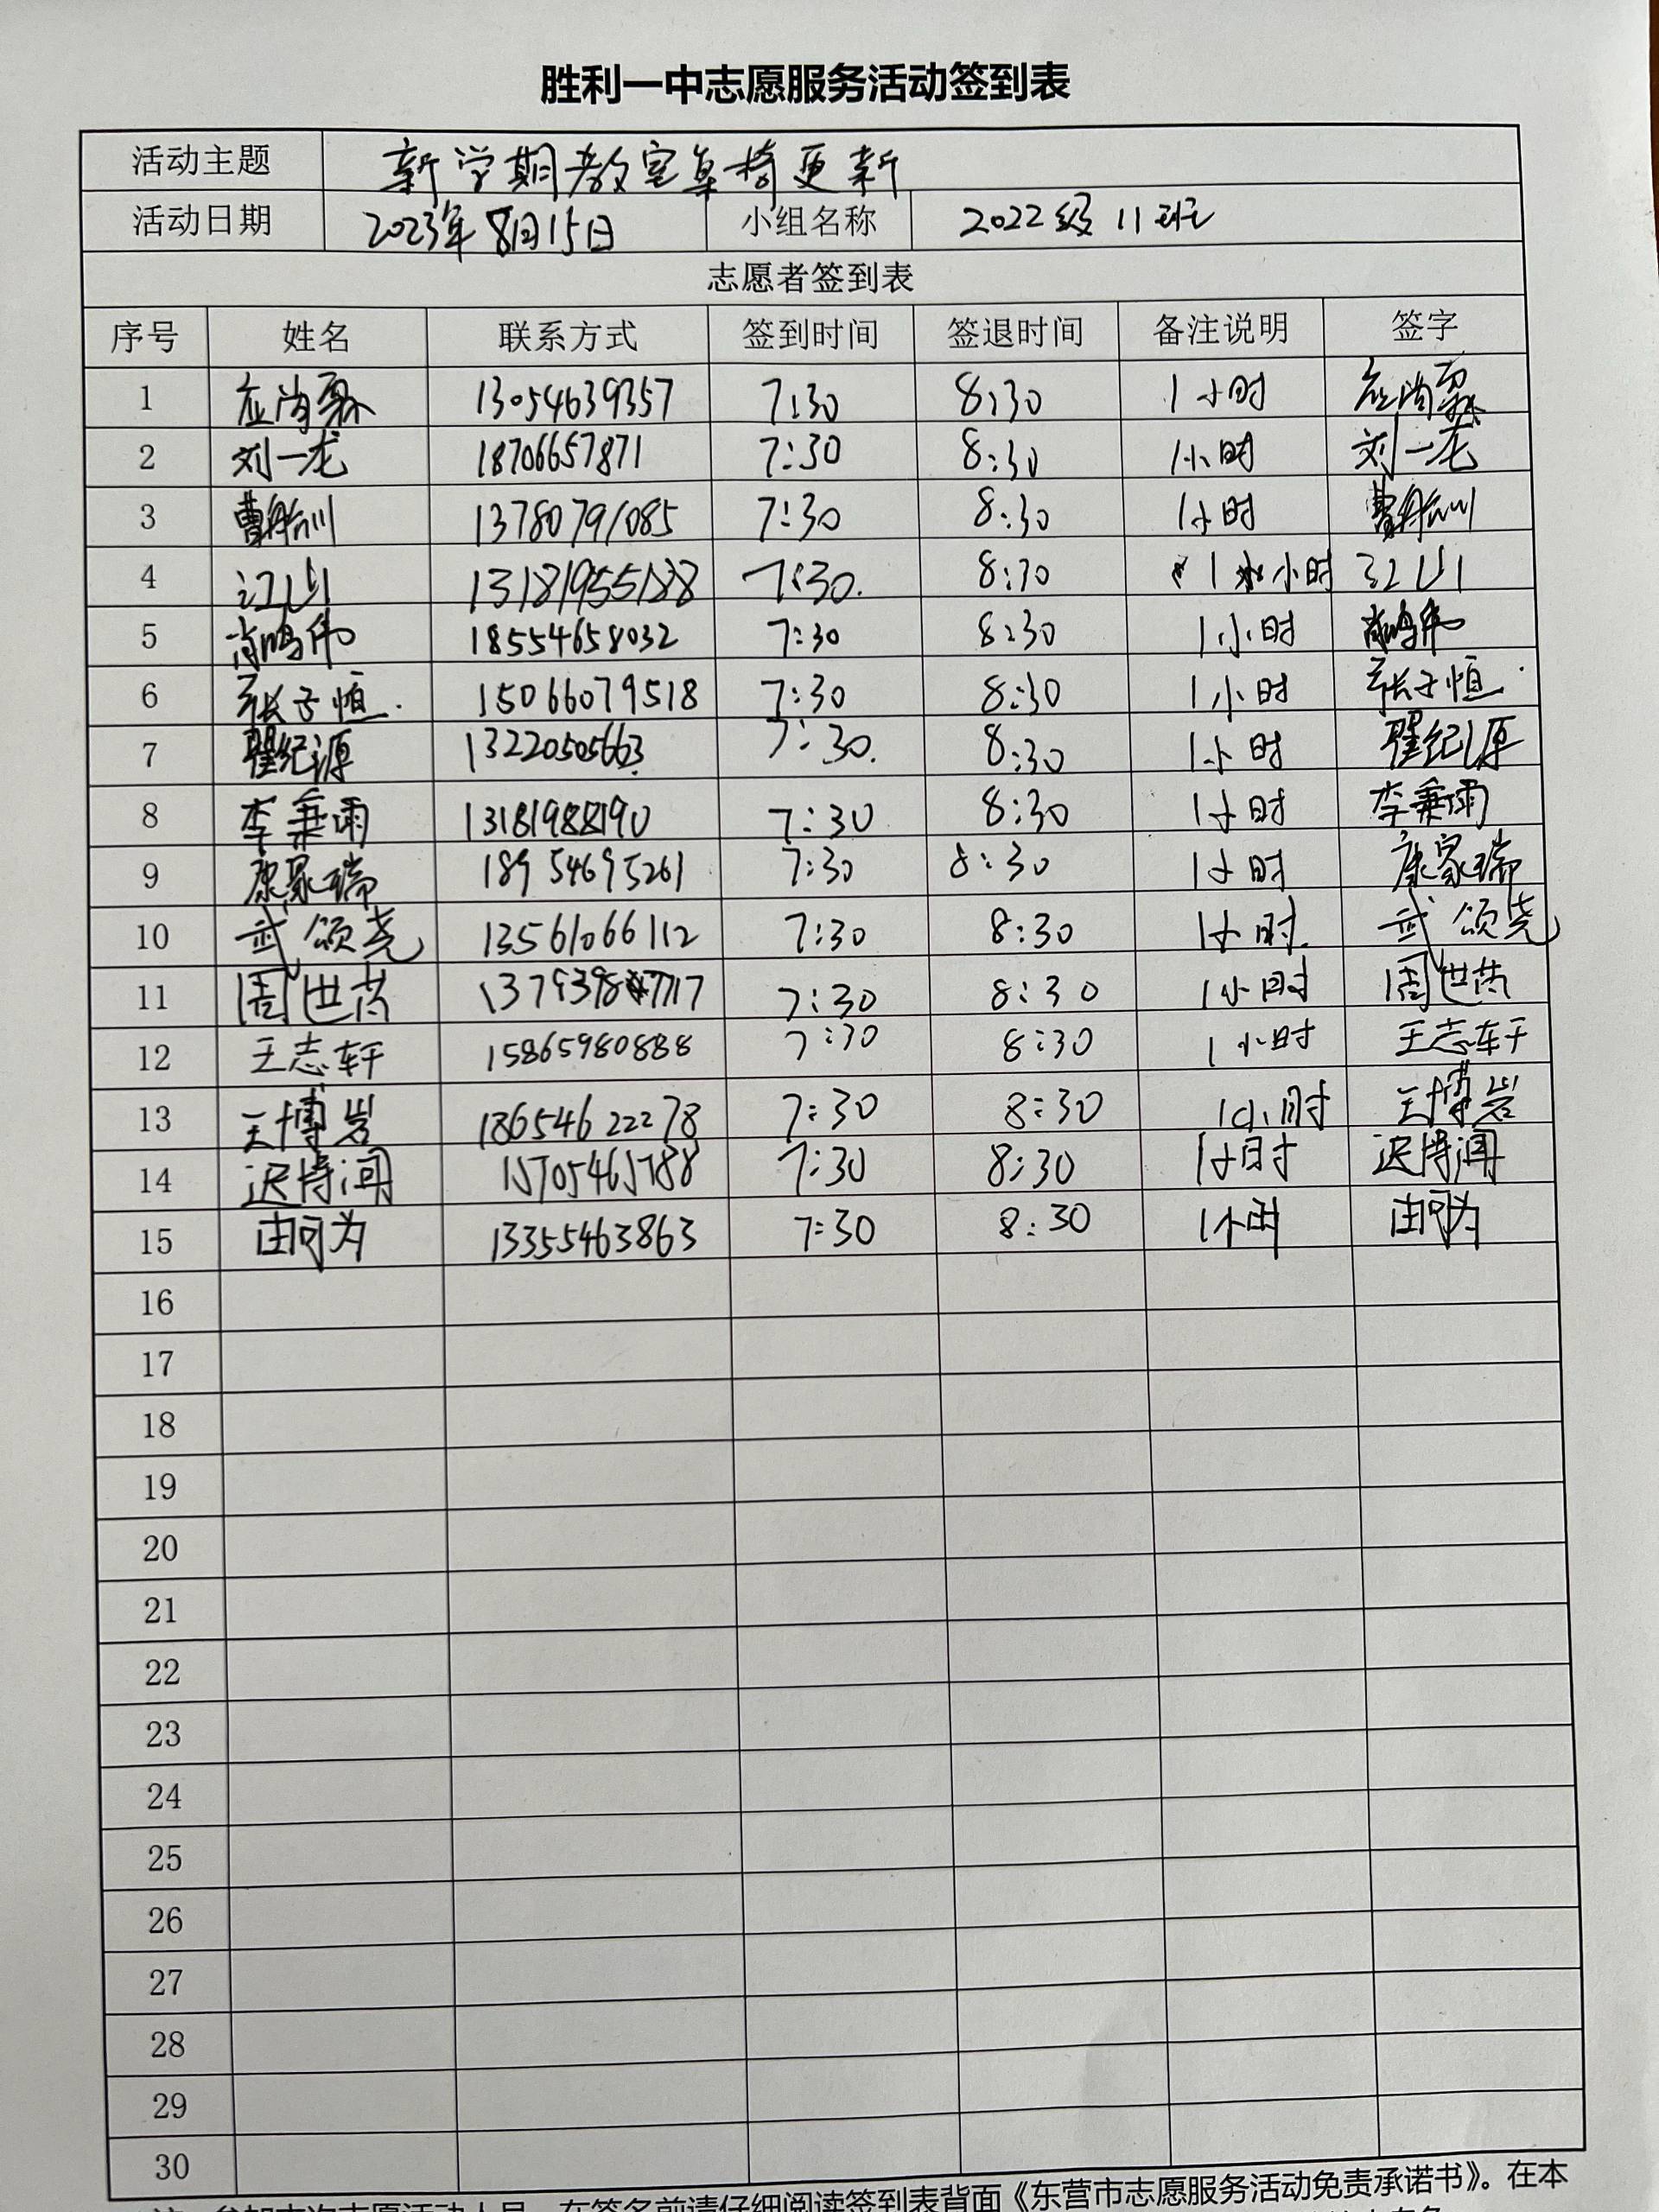 胜利一中志愿服务活动签到表
活动主题 新学期教室桌椅更新
活动日期 2023年8月15日 小组名称 2022级11班
志愿者签到表
序号 姓名 联系方式 签到时间 签退时间 备注说明 签字
1 应尚 13054639357 7:30 8:30 1小时 应尚
2 刘一龙 18706657871 7:30 8:30 1小时 刘一龙
3 曹航川 13780791085 7:30 8:30 1小时 曹航川
4 江山 13181955188 7:30. 8:30 1小时 江山
5 肖鸣伟 18554658032 7:30 8:30 1小时 肖鸣伟
6 张子恒. 15066079518 7:30 8:30 1小时 张子恒.
7 翟纪源 13220505663 7:30. 8:30 1小时 翟纪源
8 李秉雨 13181988190 7:30 8:30 1小时 李秉雨
9 康家瑞 18954695261 7:30 8:30 1小时 康家瑞
10 武颂尧 13561066112 7:30 8:30 1小时. 武颂尧
11 周世 7:30 8:30 1小时 周世
12 王志轩 15865980888 7:30 8:30 1小时 王志轩
13 王博岩 18654622278 7:30 8:30 1小时 王博岩
14 迟得润 15705465788 7:30 8:30 1小时 迟得润
15 由可为 13355463863 7:30 8:30 1小时 由可为
16
17
18
19
20
21
22
23
24
25
26
27
28
29
30
参加本次志愿活动人员，在签名前请仔细阅读签到表背面《东营市志愿服务活动免责承诺书》。在本